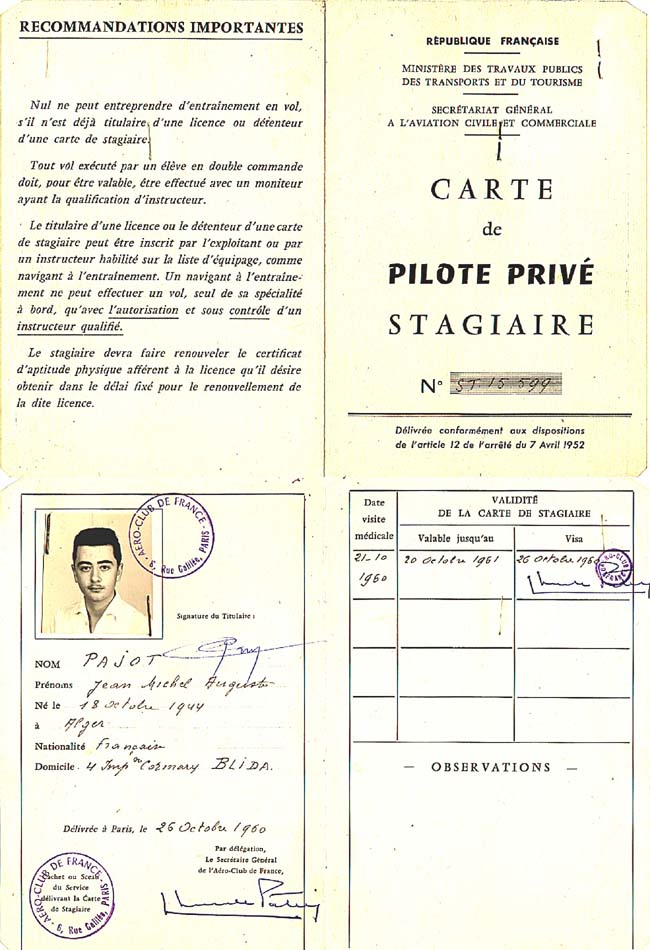 RECOMMANDATIONS IMPORTANTES
Nul ne peut entreprendre d'entraînement en vol,
s'il n'est déjà titulaire d'une licence ou détenteur
d'une carte de stagiaire.
Tout vol exécuté par un élève en double commande
doit, pour être valable, être effectué avec un moniteur
ayant la qualification d'instructeur.
Le titulaire d'une licence ou le détenteur d'une carte
de stagiaire peut être inscrit par l'exploitant ou par
un instructeur habilité sur la liste d'équipage, comme
navigant à l'entraînement. Un navigant à l'entraîne-
ment ne peut effectuer un vol, seul de sa spécialité
à bord, qu'avec l'autorisation et sous contrôle d'un
instructeur qualifié.
Le stagiaire devra faire renouveler le certificat
d'aptitude physique afférent à la licence qu'il désire
obtenir dans le délai fixé pour le renouvellement de
la dite licence.
RÉPUBLIQUE FRANÇAISE
MINISTÈRE DES TRAVAUX PUBLICS
DES TRANSPORTS ET DU TOURISME
SECRÉTARIAT GÉNÉRAL
A L'AVIATION CIVILE ET COMMERCIALE
CARTE
de
PILOTE PRIVÉ
STAGIAIRE
N° ST. 15 599
Délivrée conformément aux dispositions
de l'article 12 de l'arrêté du 7 Avril 1952
AÉRO-CLUB DE FRANCE
6, Rue Galilée, PARIS
Signature du Titulaire :
NOM PAJOT
Prénoms Jean Michel Auguste
Né le 18 Octobre 1944
à Alger
Nationalité Française
Domicile 4 Imp Cormary BLIDA.
Délivrée à Paris, le 26 Octobre 1960
Par délégation,
Le Secrétaire Général
de l'Aéro-Club de France,
AÉRO-CLUB DE FRANCE
6, Rue Galilée, PARIS
Cachet ou Sceau
du Service
délivrant la Carte
de Stagiaire
Date
visite
médicale
VALIDITÉ
DE LA CARTE DE STAGIAIRE
Valable jusqu'au
Visa
21-10
1960
20 Octobre 1961
26 Octobre 1960
— OBSERVATIONS —